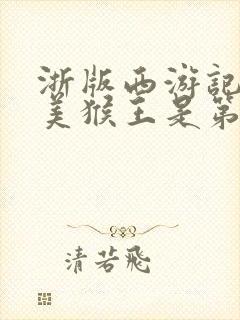 浙版西游记
美猴王是第
清若飛